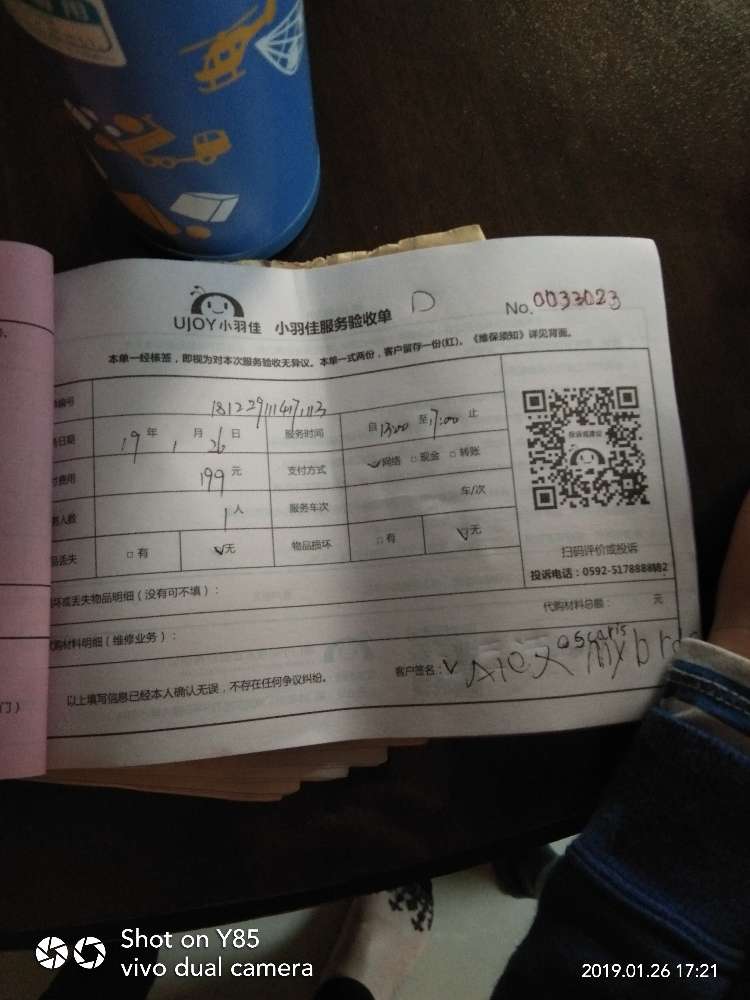 UJOY小羽佳 小羽佳服务验收单 D No. 0033023
本单一经核签，即视为对本次服务验收无异议。本单一式两份，客户留存一份(红)。《维保须知》详见背面。
编号
日期 19年 1月 26日 服务时间 自 13:00 至 17:00 止
费用 199元 支付方式 ✓网络 □现金 □转账
人数 1人 服务车次 车/次
品丢失 □有 ✓无 物品损坏 □有 ✓无
扫码评价或投诉
坏或丢失物品明细（没有可不填）：
代购材料总额： 元
购材料明细（维修业务）：
以上填写信息已经本人确认无误，不存在任何争议纠纷。 客户签名：
门）
Shot on Y85
vivo dual camera
2019.01.26 17:21